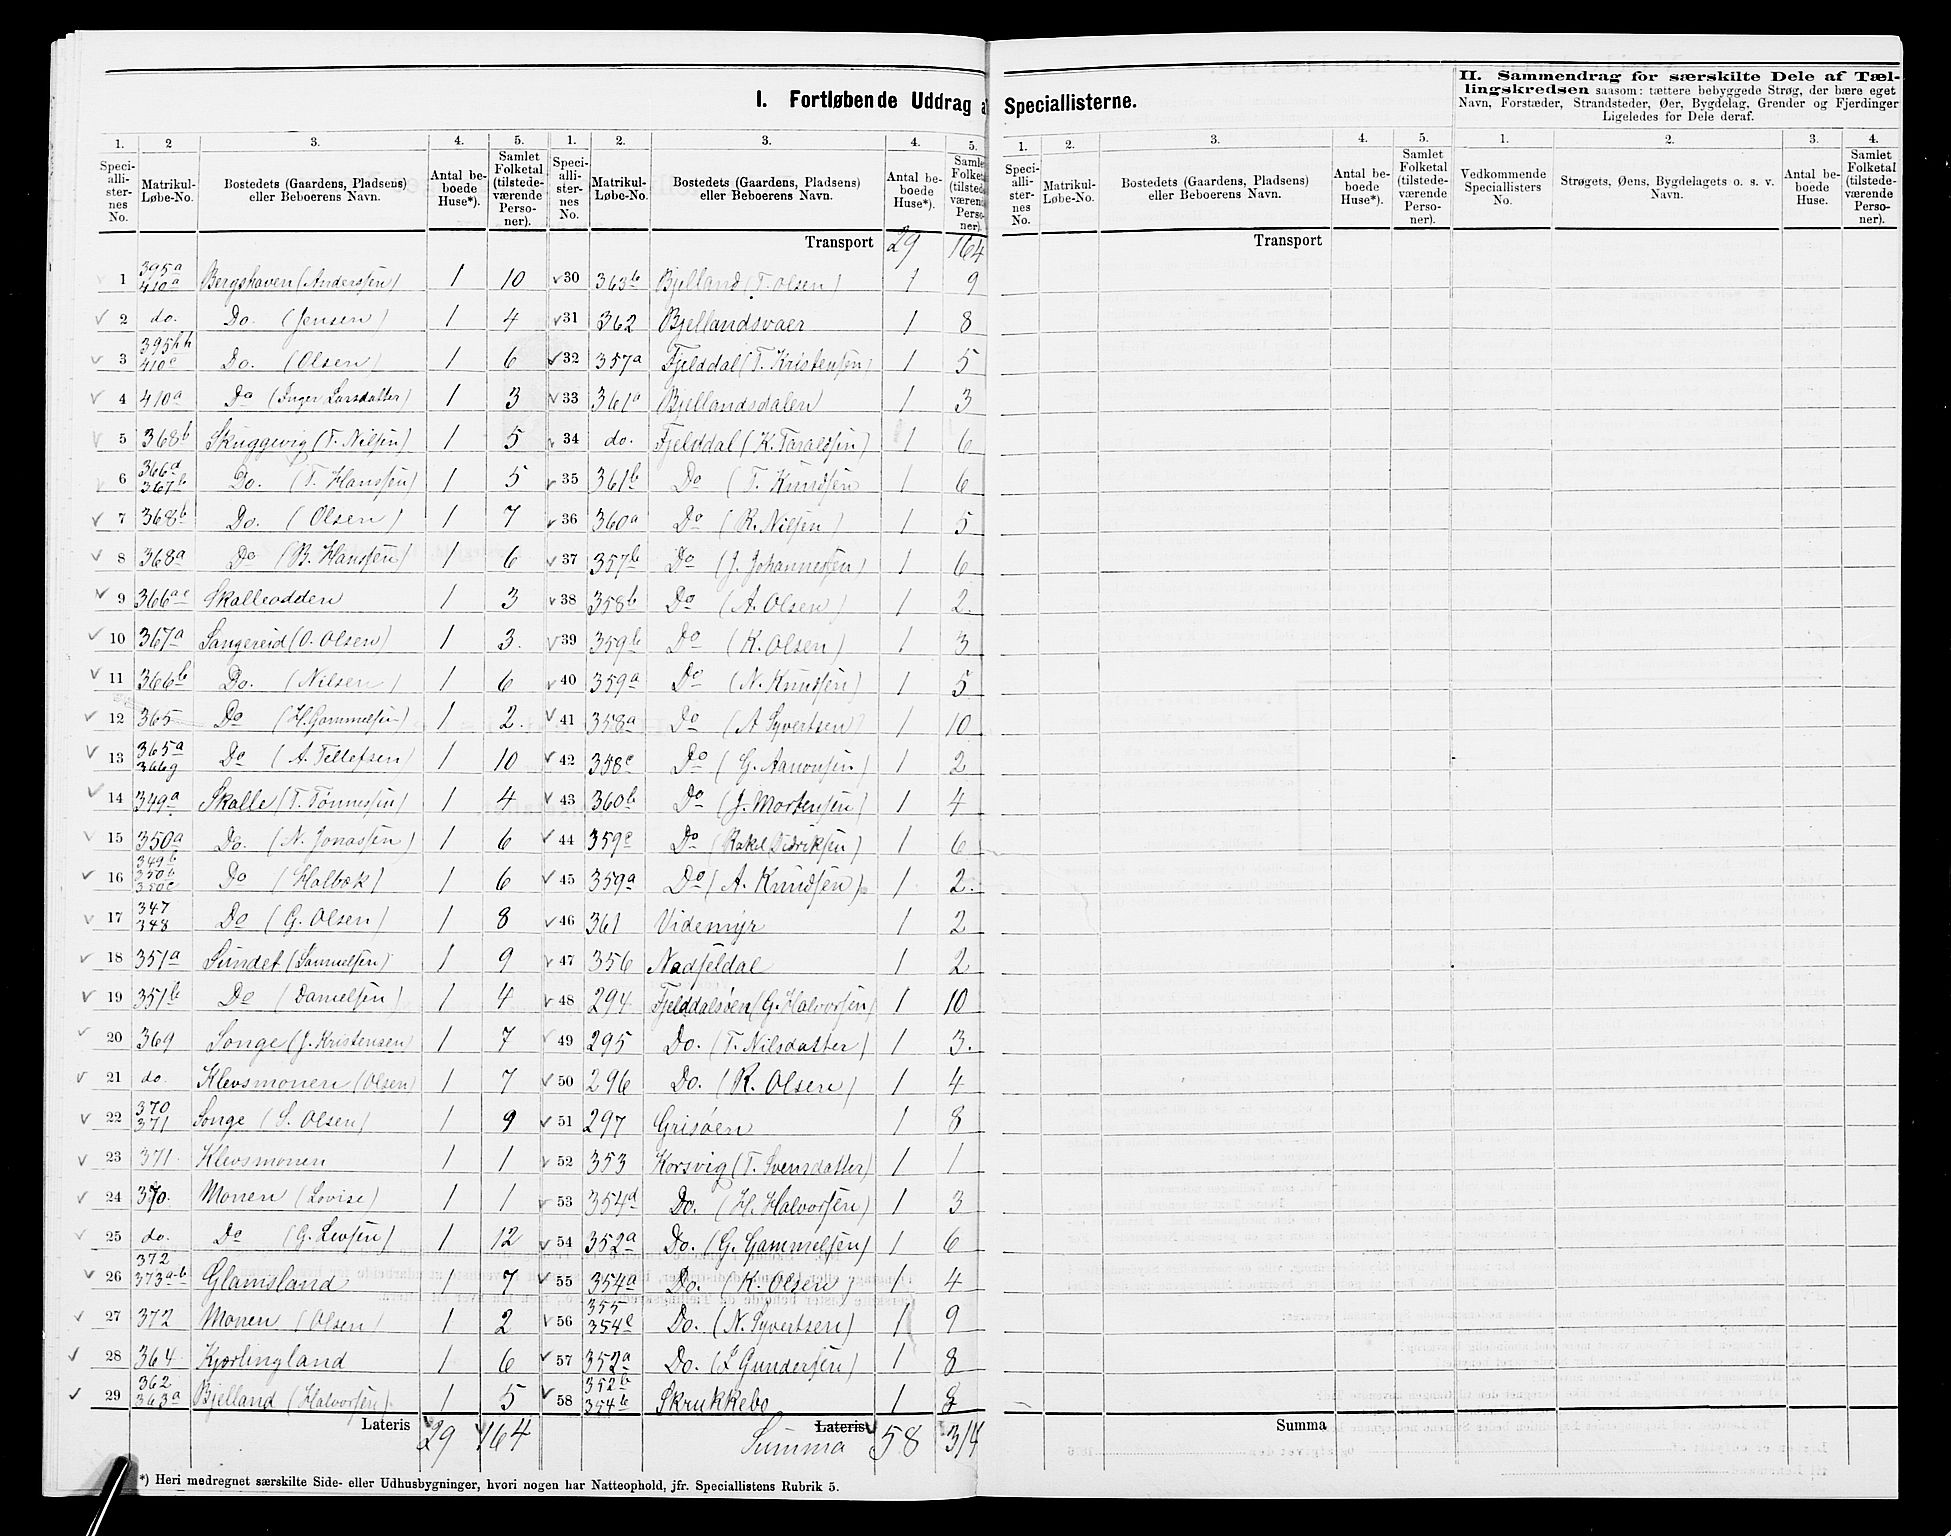 I. Fortløbende Uddrag a
Speciallisterne.
II. Sammendrag for særskilte Dele af Tæl-
lingskredsen saasom: tættere bebyggede Strøg, der bære eget
Navn, Forstæder, Strandsteder, Øer, Bygdelag, Grender og Fjerdinger
Ligeledes for Dele deraf.
1. 2 3. 4. 5. 1. 2. 3. 4. 5. 1. 2. 3. 4. 5. 1. 2. 3. 4.
Speci-alli-ster-nes No. Matrikul-Løbe-No. Bostedets (Gaardens, Pladsens) eller Beboerens Navn. Antal be-boede Huse*). Samlet Folketal (tilstede-værende Perso-ner).
Speci-alli-ster-nes No. Matrikul-Løbe-No. Bostedets (Gaardens, Pladsens) eller Beboerens Navn. Antal be-boede Huse*). Samlet Folketal (tilstede værende Perso-ner).
Speci-alli-ster-nes No. Matrikul-Løbe-No. Bostedets (Gaardens, Pladsens) eller Beboerens Navn. Antal be-boede Huse*). Samlet Folketal (tilstede-værende Perso-ner).
Vedkommende Speciallisters No. Strøgets, Øens, Bygdelagets o. s. v. Navn. Antal be-boede Huse. Samlet Folketal (tilstede-værende Perso-ner).
1 395a 410a Bergshaven (Anderssen) 1 10
2 do. Do. (Jensen) 1 4
3 395hh 410c Do. (Olsen) 1 6
4 410a Do (Inger Larsdatter) 1 3
5 368b Skuggevig (T. Nilsen) 1 5
6 366d 367b Do. (T. Hanssen) 1 5
7 368b Do. (Olsen) 1 7
8 368a Do (B. Hanssen) 1 6
9 366ae Skalleodden 1 3
10 367a Sangereid (O. Olsen) 1 3.
11 366b Do. (Nilsen) 1 6
12 365 Do (H. Gammelsen) 1 2.
13 365a 366g Do (A. Tellefsen) 1 10
14 349a Skalle (T. Tønnessen) 1 4
15 350a Do. (N. Jonassen) 1 6
16 349b 350b 350c Do (Holbæk) 1 6
17 347 348 Do (G. Olsen) 1 8
18 351a Sundet (Samuelsen) 1 9
19 351b Do (Danielsen) 1 4
20 369 Songe (J. Kristensen) 1 7
21 do. Klevsmonen (Olsen) 1 7
22 370 371 Songe (S. Olsen) 1 9
23 371. Klevsmonen 1 1
24 370. Monen (Lovise) 1 1
25 do. Do (G. Levsen) 1 12
26 372 373a-b Glamsland 1 7
27 372 Monen (Olsen) 1 2
28 364 Kjørlingland 1 6
29 362 363a Bjelland (Halvorsen). 1 5
Lateris 29 164
Transport 29 164
30 363b Bjelland (T. Olsen) 1 9
31 362 Bjellandsvaer 1 8
32 357a Fjelddal (T. Kristensen) 1 5
33 361a Bjellandsdalen 1 3
34 do. Fjelddal (K. Taraldsen) 1 6
35 361b Do (T. Knudsen 1 6
36 360a Do (R. Nilsen) 1 5
37 357b Do (J. Johannessen) 1 6
38 358b Do (A. Olsen) 1 2.
39 359b Do (K. Olsen) 1 3
40 359a Do (N. Knudsen) 1 5
41 358a Do (A Syvertsen) 1 10
42 358c Do (G. Aanonsen) 1 2
43 360b Do (J. Mortensen) 1 4
44 359c Do (Rakel Didriksen) 1 6
45 359a Do (A. Knudsen). 1 2.
46 361 Videmyr 1 2
47 356 Nedfjeldal 1 2
48 294 Fjelddalsøen (G. Halvorsen) 1 10
49 295 Do. (T. Nilsdatter) 1 3.
50 296 Do. (R. Olsen) 1 4
51 297 Grisøen 1 8
52 353 Korsvig (T. Svensdatter) 1 1
53 354d Do. (H. Halvorsen) 1 3
54 352a Do. (G. Gammelsen) 1 6
55 354a Do. (K. Olsen) 1 4
56 355 354c Do. (N. Syvertsen) 1 9
57 352a Do. (L Gundersen) 1 8
58 352b 354b Skrukkebo 1 8
Lateris Summa 58 314
Transport
Summa
*) Heri medregnet særskilte Side- eller Udhusbygninger, hvori nogen har Natteophold, jfr. Speciallistens Rubrik 5.